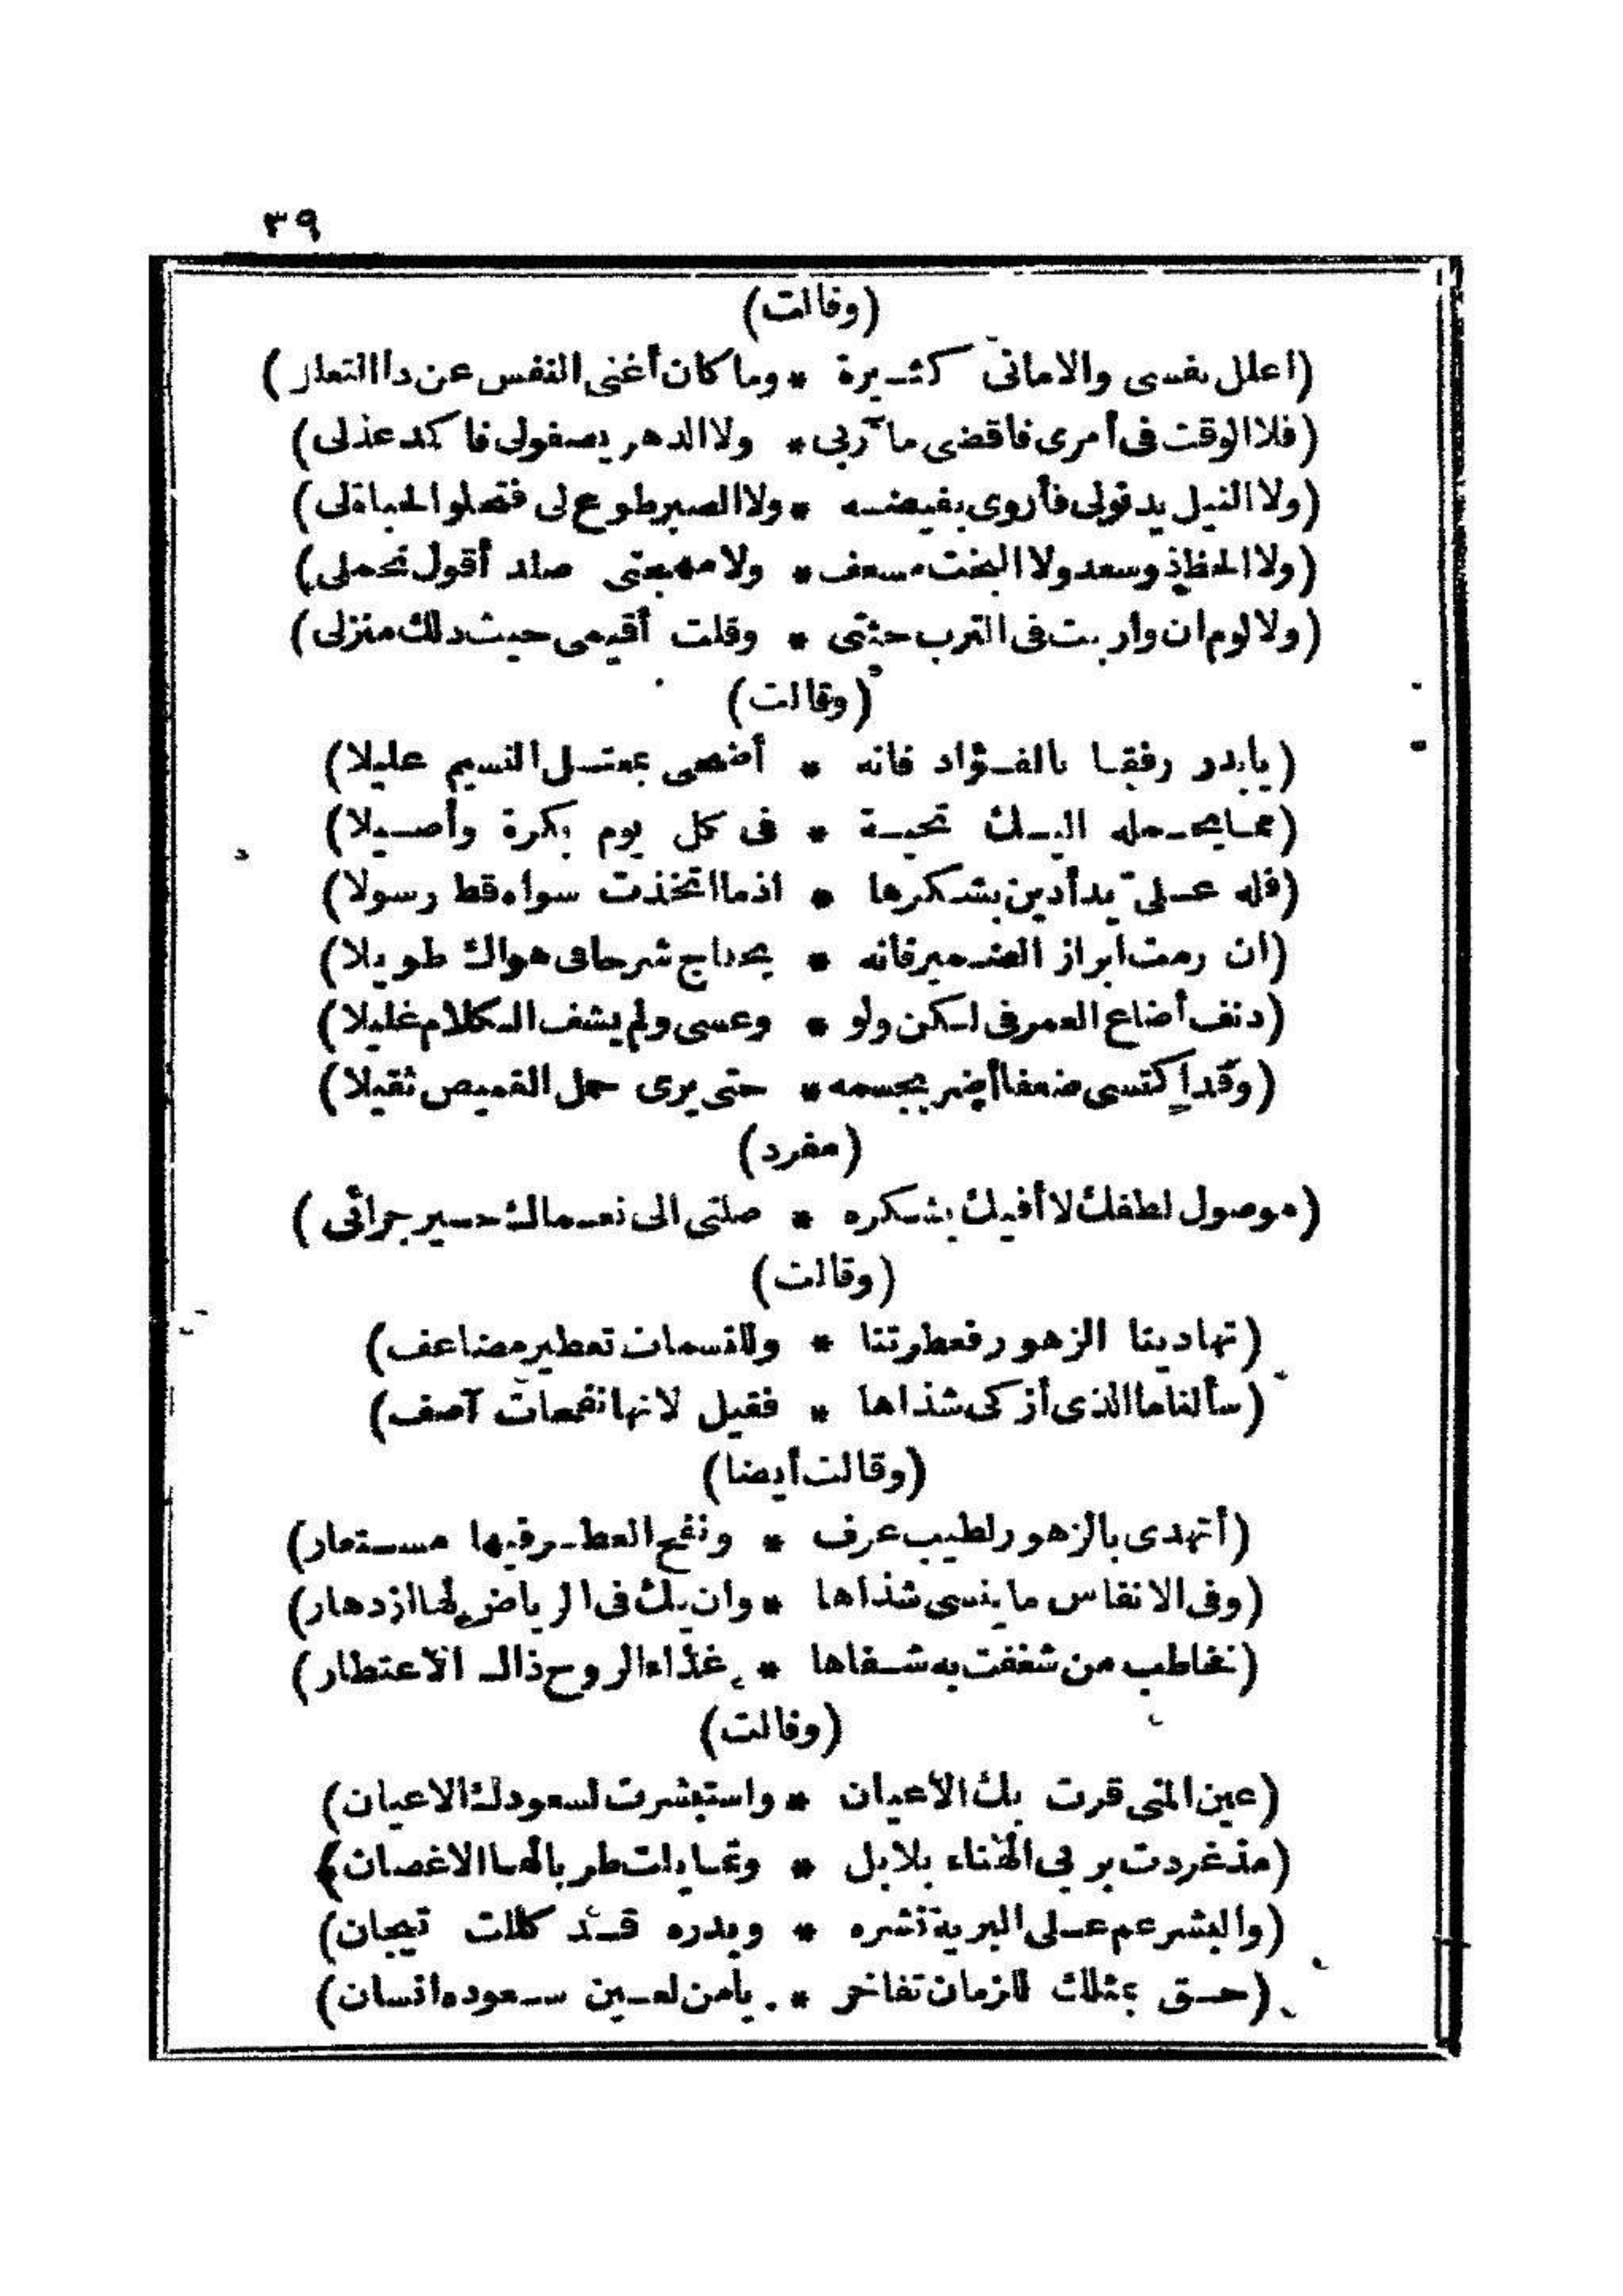 ٣٩
(وقالت)
(اعلل نفسى والامانى كثيرة * وما كان أغنى النفس عن ذا التعلل)
(فلا الوقت فى أمرى فاقضى مآربى * ولا الدهر يصفولى فاكمد عذلى)
(ولا النيل يدنولى فأروى بفيضه * ولا الصبر طوع لى فتحلو الحياة لى)
(ولا الحظ ذو سعد ولا البخت مسعف * ولا مهجتى صلد أقول تحملى)
(ولا لوم ان واريت فى الترب جثتى * وقلت أقيمى حيث ذلك منزلى)
(وقالت)
(يابدر رفقا بالفؤاد فانه * أضحى بمعتل النسيم عليلا)
(مما يحمله اليك تحية * فى كل يوم بكرة وأصيلا)
(فله على يد أدين بشكرها * اذ ما اتخذت سواه قط رسولا)
(ان رمت ابراز الضمير فانه * يحتاج شرحا فى هواك طويلا)
(دنف أضاع العمر فى لكن ولو * وعسى ولم يشف الكلام غليلا)
(وقد اكتسى ضعفا أضر بجسمه * حتى يرى حمل القميص ثقيلا)
(مفرد)
(موصول لطفك لا أفيك بشكره * صلتى الى نعماك حسير جرائى)
(وقالت)
(تهادينا الزهور فعطرتنا * وللنسمات تعطير مضاعف)
(سألنا ما الذى أزكى شذاها * فقيل لانها نفحات آصف)
(وقالت أيضا)
(أتهدى بالزهور لطيب عرف * ونفح العطر فيها مستعار)
(وفى الانفاس ما ينسى شذاها * وان يك فى الرياض لها ازدهار)
(نخاطب من شغفت به شفاها * غذاء الروح ذاك الاعتطار)
(وقالت)
(عين المنى قرت بك الأعيان * واستبشرت لسعودك الاعيان)
(مذ غردت بربى الهناء بلابل * وتمايلت طربا لها الاغصان)
(والبشر عم على البرية نشره * وبدره قد كللت تيجان)
(حق بمثلك للزمان تفاخر * يامن لعين سعوده انسان)